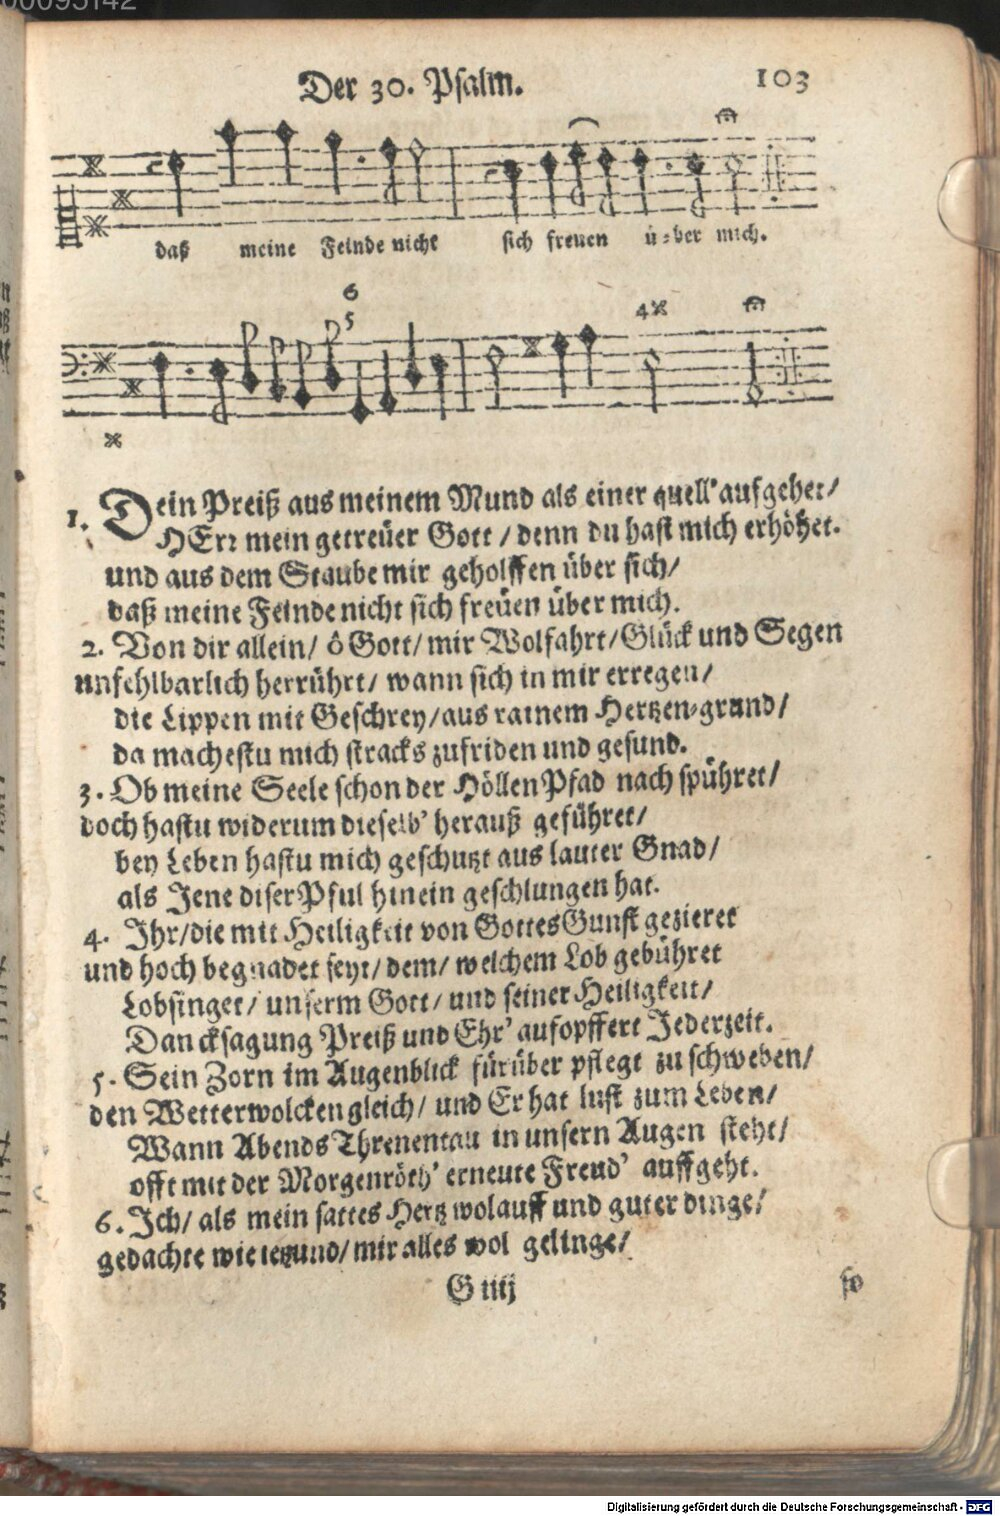 00095142
Der 30. Psalm. 103
daß meine Feinde nicht sich freuen ü=ber mich.
6
5
4
1. Dein Preiß aus meinem Mund als einer quell' aufgehet/
HErr mein getreüer Gott / denn du hast mich erhöhet.
und aus dem Staube mir geholffen über sich/
daß meine Feinde nicht sich freüen über mich.
2. Von dir allein/ ô Gott/ mir Wolfahrt/ Glück und Segen
unfehlbarlich herrührt/ wann sich in mir erregen/
die Lippen mit Geschrey/ aus rainem Hertzen-grund/
da machestu mich stracks zufriden und gesund.
3. Ob meine Seele schon der Höllen Pfad nach spühret/
doch hastu widerum dieselb' herauß geführet/
bey Leben hastu mich geschutzt aus lauter Gnad/
als Jene diser Pful hinein geschlungen hat.
4. Ihr/ die mit Heiligkeit von Gottes Gunst gezieret
und hoch begnadet seyt/ dem/ welchem Lob gebühret
Lobsinget/ unserm Gott/ und seiner Heiligkeit/
Dancksagung Preiß und Ehr' aufopffert Jederzeit.
5. Sein Zorn im Augenblick fürüber pflegt zu schweben/
den Wetterwolcken gleich/ und Er hat lust zum Leben/
Wann Abends Threnentau in unsern Augen steht/
offt mit der Morgenröth' erneute Freud' auffgeht.
6. Ich/ als mein sattes Hertz wolauff und guter dinge/
gedachte wie ietzund/ mir alles wol gelinge/
G iiij so
Digitalisierung gefördert durch die Deutsche Forschungsgemeinschaft - DFG